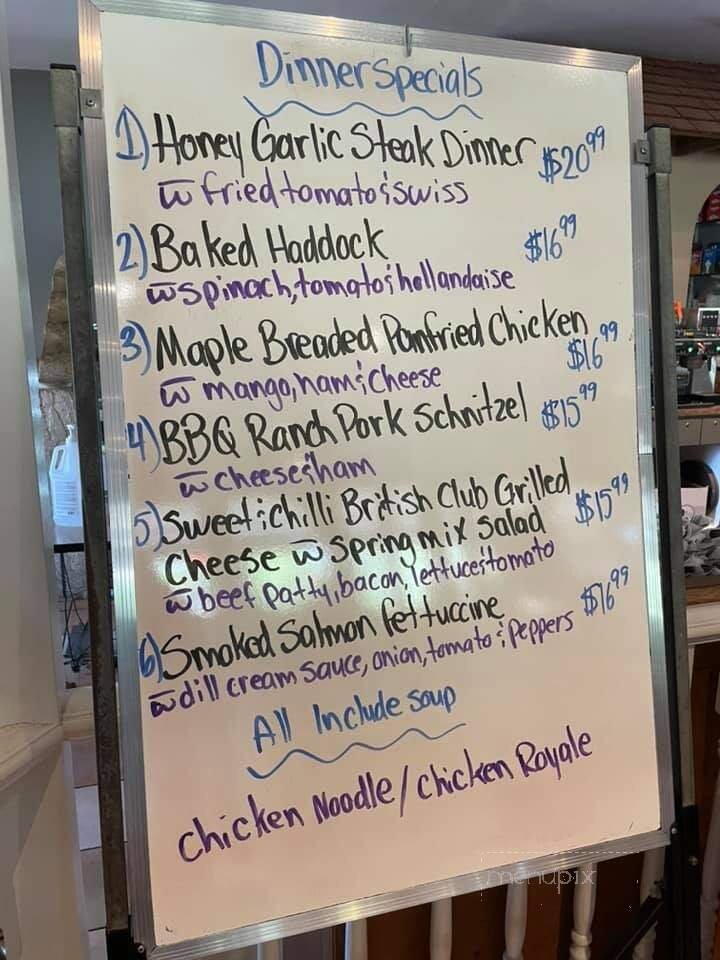 Dinner Specials
1) Honey Garlic Steak Dinner $20.99
w̅ fried tomato & swiss
2) Baked Haddock $16.99
w̅ spinach, tomato & hollandaise
3) Maple Breaded Panfried Chicken
$16.99
w̅ mango, ham & Cheese
4) BBQ Ranch Pork Schnitzel $15.99
w̅ cheese & ham
5) Sweet & chilli British Club Grilled
Cheese w̅ spring mix salad $15.99
w̅ beef patty, bacon, lettuce & tomato
6) Smoked Salmon fettuccine $16.99
w̅ dill cream sauce, onion, tomato & peppers
All Include soup
Chicken Noodle / Chicken Royale
menupix